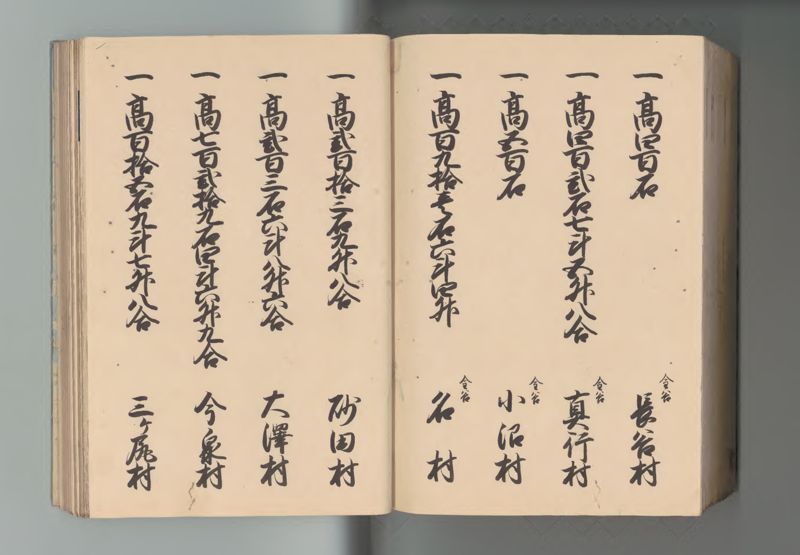 一 高四百石 仝谷 長谷村
一 高四百弐石七斗五升八合 仝谷 真行村
一 高五百石 仝谷 小沼村
一 高百九拾壱石六斗四升 仝谷 名村
一 高弐百拾三石九升八合 砂田村
一 高弐百三石六斗八升六合 大澤村
一 高七百弐拾九石四斗六升九合 今泉村
一 高百拾五石九斗七升八合 三ヶ尻村